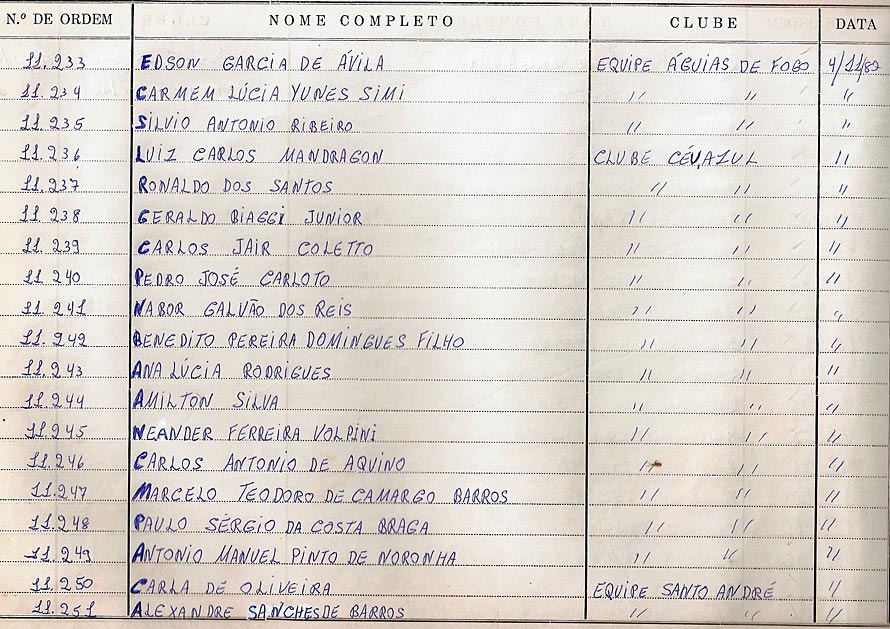 N.º DE ORDEM NOME COMPLETO CLUBE DATA
11.233 EDSON GARCIA DE ÁVILA EQUIPE ÁGUIAS DE FOGO 4/11/82
11.234 CARMEM LÚCIA YUNES SIMI " " "
11.235 SILVIO ANTONIO RIBEIRO " " "
11.236 LUIZ CARLOS MANDRAGON CLUBE CÉU AZUL "
11.237 RONALDO DOS SANTOS " " "
11.238 GERALDO BIAGGI JUNIOR " " "
11.239 CARLOS JAIR COLETTO " " "
11.240 PEDRO JOSÉ CARLOTO " " "
11.241 NABOR GALVÃO DOS REIS " " "
11.242 BENEDITO PEREIRA DOMINGUES FILHO " " "
11.243 ANA LÚCIA RODRIGUES " " "
11.244 AMILTON SILVA " " "
11.245 NEANDER FERREIRA VOLPINI " " "
11.246 CARLOS ANTONIO DE AQUINO " " "
11.247 MARCELO TEODORO DE CAMARGO BARROS " " "
11.248 PAULO SÉRGIO DA COSTA BRAGA " " "
11.249 ANTONIO MANUEL PINTO DE NORONHA " " "
11.250 CARLA DE OLIVEIRA EQUIPE SANTO ANDRÉ "
11.251 ALEXANDRE SANCHES DE BARROS " " "